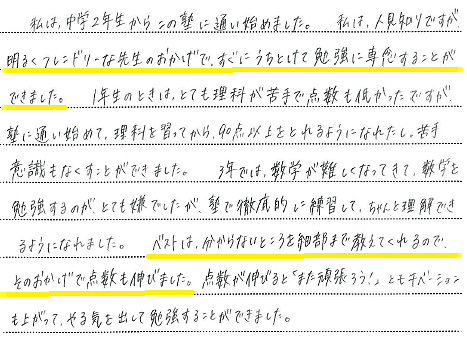 私は、中学2年生からこの塾に通い始めました。 私は、人見知りですが
明るくフレンドリーな先生のおかげで、すぐにうちとけて勉強に専念することが
できました。 1年生のときは、とても理科が苦手で点数も低かったですが
塾に通い始めて、理科を習ってから、90点以上をとれるようになれたし、苦手
意識もなくすことができました。 3年では、数学が難しくなってきて、数学を
勉強するのが、とても嫌でしたが、塾で徹底的に練習して、ちゃんと理解でき
るようになれました。 ベストは、分からないところを細部まで教えてくれるので、
そのおかげで点数も伸びました。点数が伸びると「また頑張ろう!」とモチベーション
も上がって、やる気を出して勉強することができました。